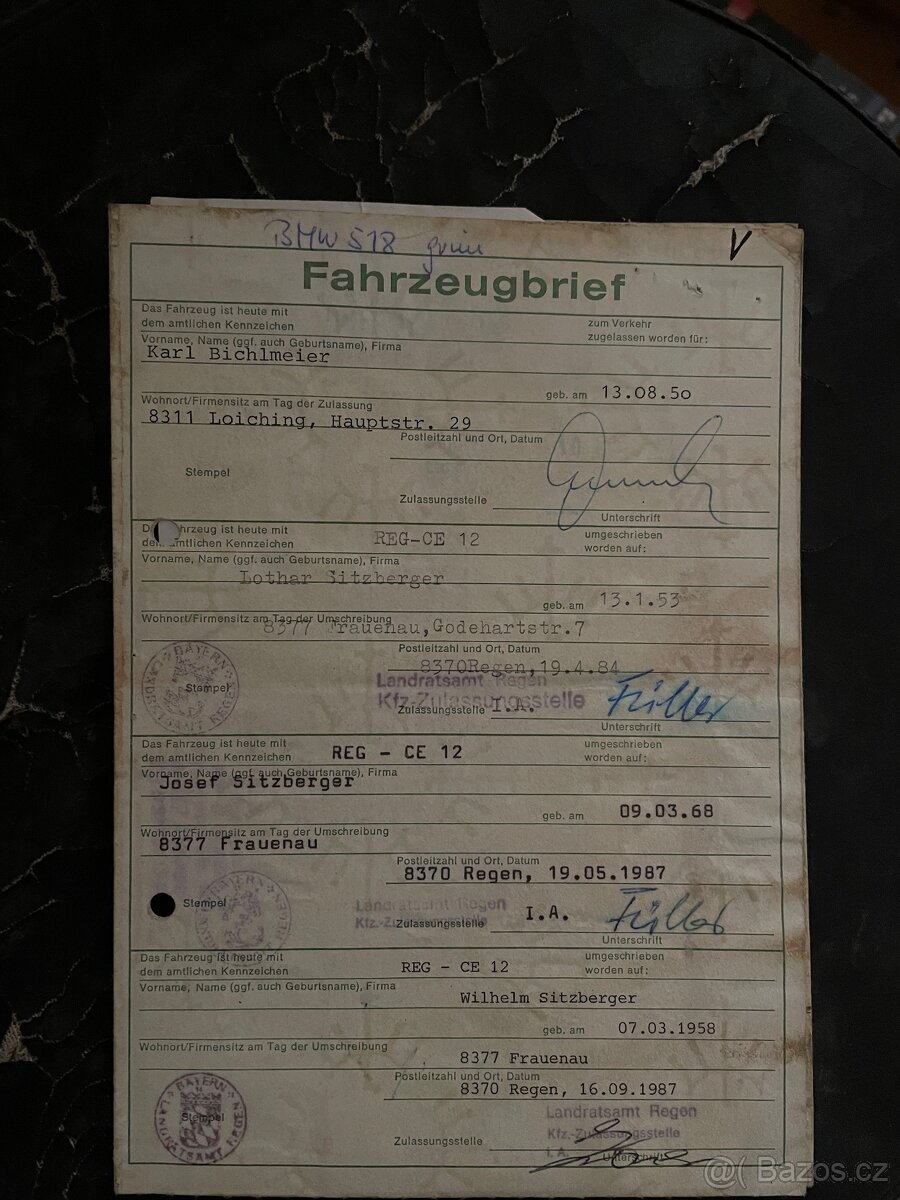 BMW 518 grün
V
Fahrzeugbrief
Das Fahrzeug ist heute mit
dem amtlichen Kennzeichen
zum Verkehr
zugelassen worden für:
Vorname, Name (ggf. auch Geburtsname), Firma
Karl Bichlmeier
geb. am 13.08.50
Wohnort/Firmensitz am Tag der Zulassung
8311 Loiching, Hauptstr. 29
Postleitzahl und Ort, Datum
Stempel
Zulassungsstelle
Unterschrift
Das Fahrzeug ist heute mit
dem amtlichen Kennzeichen
REG-CE 12
umgeschrieben
worden auf:
Vorname, Name (ggf. auch Geburtsname), Firma
Lothar Sitzberger
geb. am 13.1.53
Wohnort/Firmensitz am Tag der Umschreibung
8377 Frauenau, Godehartstr.7
Postleitzahl und Ort, Datum
8370Regen,19.4.84
BAYERN
LANDRATSAMT REGEN
Stempel
Landratsamt Regen
Kfz-Zulassungsstelle
Zulassungsstelle I.A. Füller
Unterschrift
Das Fahrzeug ist heute mit
dem amtlichen Kennzeichen
REG - CE 12
umgeschrieben
worden auf:
Vorname, Name (ggf. auch Geburtsname), Firma
Josef Sitzberger
geb. am 09.03.68
Wohnort/Firmensitz am Tag der Umschreibung
8377 Frauenau
Postleitzahl und Ort, Datum
8370 Regen, 19.05.1987
BAYERN
Stempel
Landratsamt Regen
Kfz.-Zulassungsstelle
Zulassungsstelle I.A. Füller
Unterschrift
Das Fahrzeug ist heute mit
dem amtlichen Kennzeichen
REG - CE 12
umgeschrieben
worden auf:
Vorname, Name (ggf. auch Geburtsname), Firma
Wilhelm Sitzberger
geb. am 07.03.1958
Wohnort/Firmensitz am Tag der Umschreibung
8377 Frauenau
Postleitzahl und Ort, Datum
8370 Regen, 16.09.1987
BAYERN
LANDRATSAMT REGEN
Stempel
Landratsamt Regen
Kfz.-Zulassungsstelle
Zulassungsstelle
I. A.
Unterschrift
@( Bazos.cz